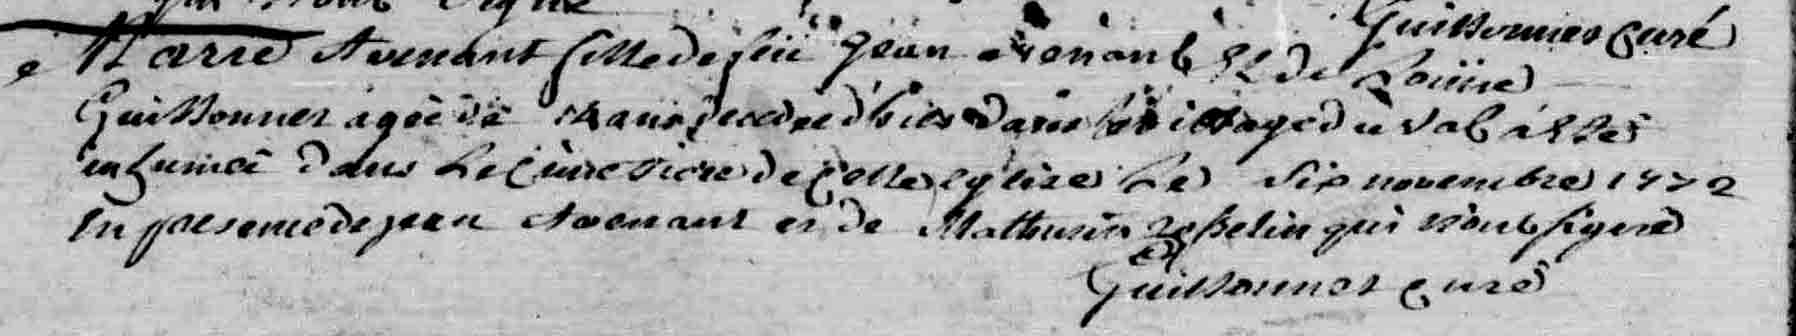 qui n'ont signé
Guillonner curé
Marie Avenant fille de feu Jean Avenant et de Louise
Guillonner agée de ans decedee d'hier dans le village du val a été
inhumée dans le cimetiere de cette eglise le six novembre 1772
en presence de jean Avenant et de Mathurin qui n'ont signé
Guillonner curé